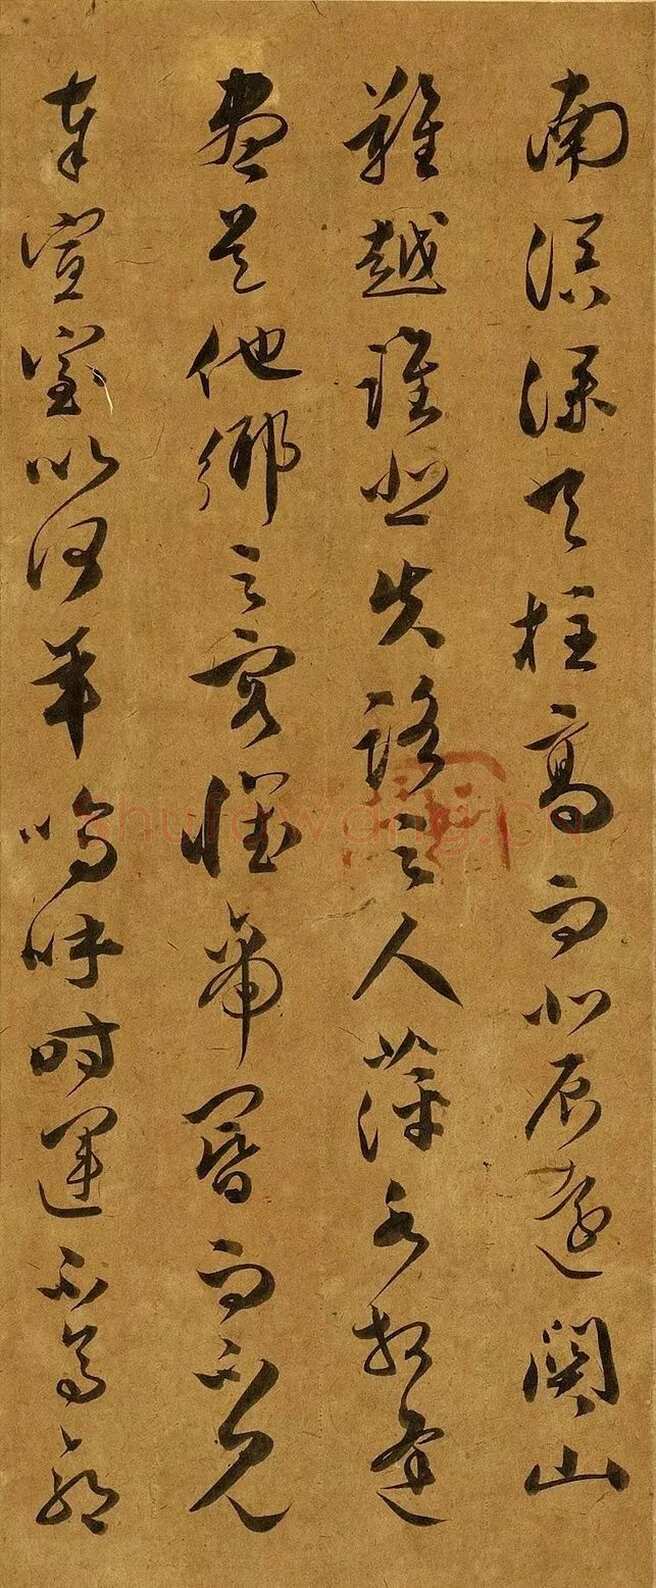 南溟深天柱高而北辰遠關山
難越誰悲失路之人萍水相逢
盡是他鄉之客懷帝閽而不見
奉宣室以何年嗚呼時運不齊命
shufawang.cn